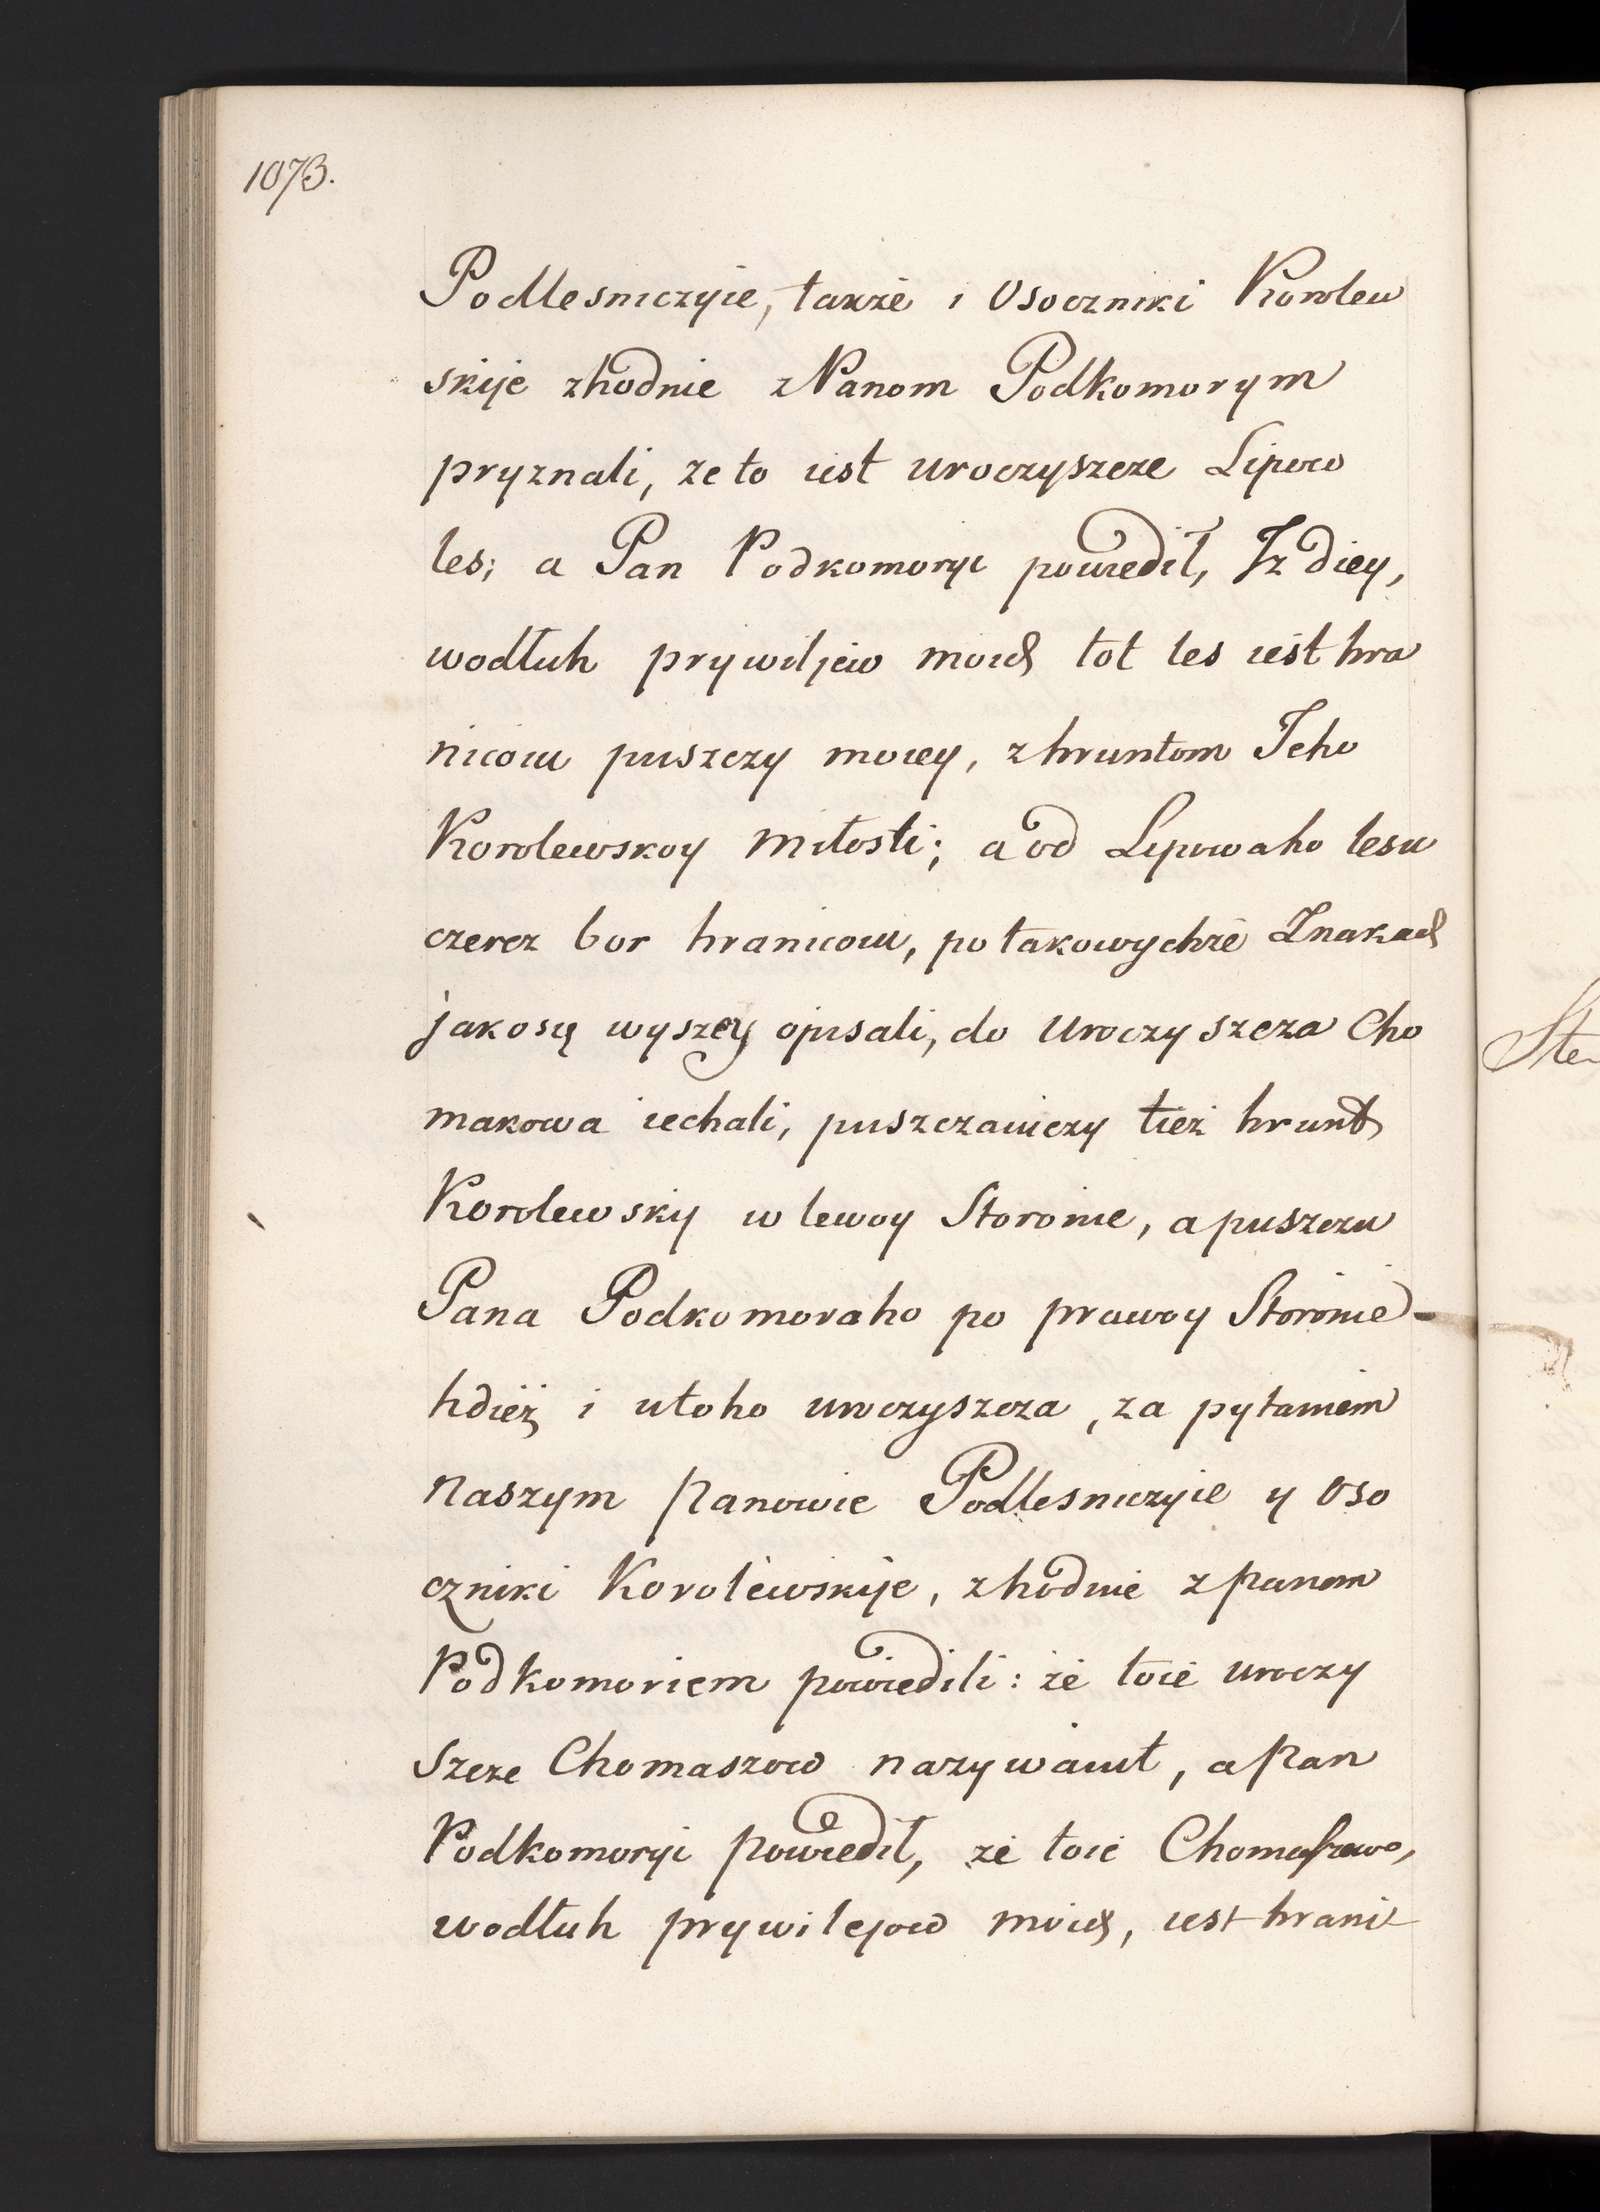 1073.
Podlesniczyie, takżė i Osoczniki Korolew
skije zhodnie z Panom Podkomorym
pryznali, że to iest uroczyszcze Lipowo
les; a Pan Podkomoryi powiedił, Iż diey,
wodłuh prywiljew moich tot les iest hra
nicoiu puszczy moiey, z hruntom Jeho
Korolewskoy Miłosti; a od Lipowaho lesu
czerez bor hranicoiu, po takowychże Znakach
jako się wyszey opisali, do uroczyszcza Cho
makowa iechali, puszczaiuczy tież hrunt
Korolewsky w lewoy Storonie, a puszczu
Pana Podkomoraho po prawoy Storonie
hdież i u toho uroczyszcza, za pytaniem
naszym Panowie Podlesniczyie y Oso
czniki Korolewskije, zhodnie z panom
Podkomoriem powiedili: że toie uroczy
szcze Chomaszowo nazywaiut, a Pan
Podkomoryi powiedił, że toie Chomaszowo,
wodłuh prywilejow moich, iest hrani
Ste